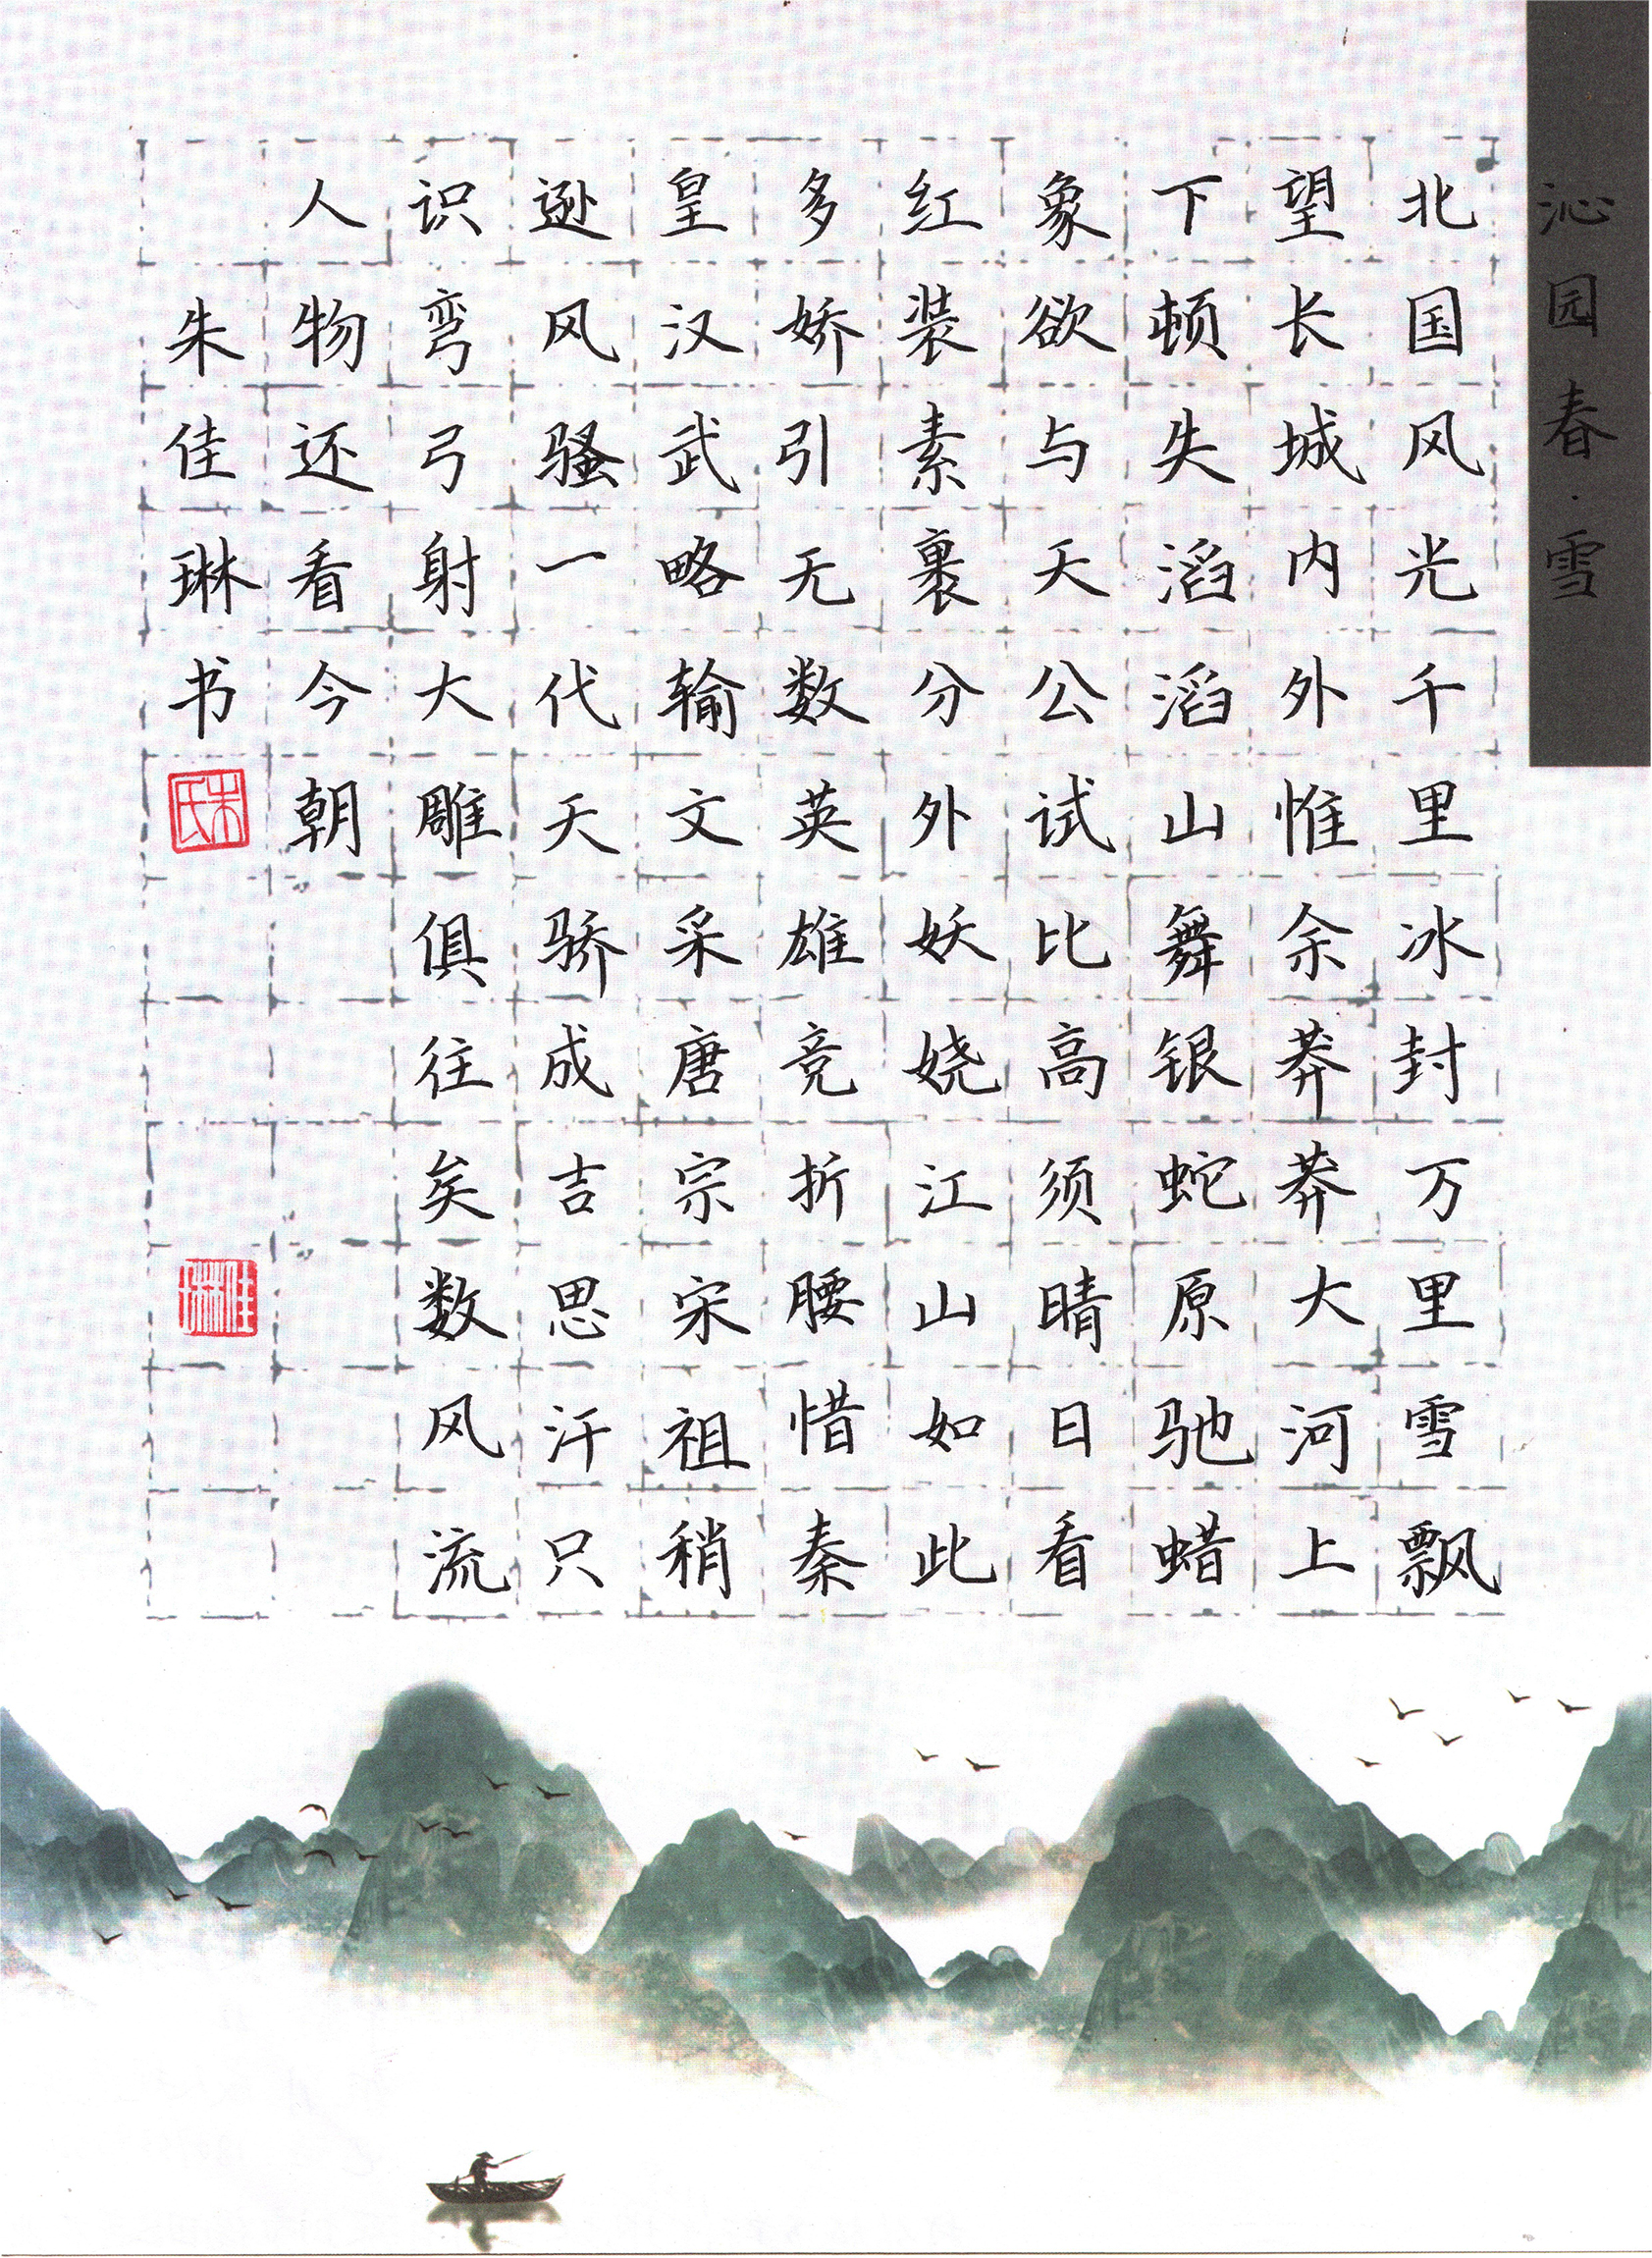 沁园春·雪
北国风光千里冰封万里雪飘
望长城内外惟余莽莽大河上
下顿失滔滔山舞银蛇原驰蜡
象欲与天公试比高须晴日看
红装素裹分外妖娆江山如此
多娇引无数英雄竞折腰惜秦
皇汉武略输文采唐宗宋祖稍
逊风骚一代天骄成吉思汗只
识弯弓射大雕俱往矣数风流
人物还看今朝
朱佳琳书
朱氏
佳琳